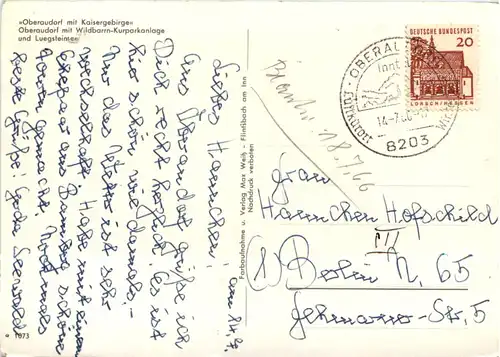 »Oberaudorf mit Kaisergebirge«
Oberaudorf mit Wildbarrn-Kurparkanlage
und Luegsteinsee
am 14.7.
Liebes Hannchen!
Aus Oberaudorf grüße ich
Dich recht herzlich. Es ist
hier schön wie damals,
nur das Wetter ist sehr
wechselhaft. Habe mit einem
Ehepaar aus Bamberg schöne
Touren gemacht. Nochmals
beste Grüße!
Farbaufnahme u. Verlag Max Weiß - Flintsbach am Inn
Nachdruck verboten
18.7.66
DEUTSCHE BUNDESPOST
20
LORSCH/HESSEN
OBERAUDORF
14-7.66
8203
Frau
Hannchen Hofschild
(1) Berlin N. 65
Str. 5
1073